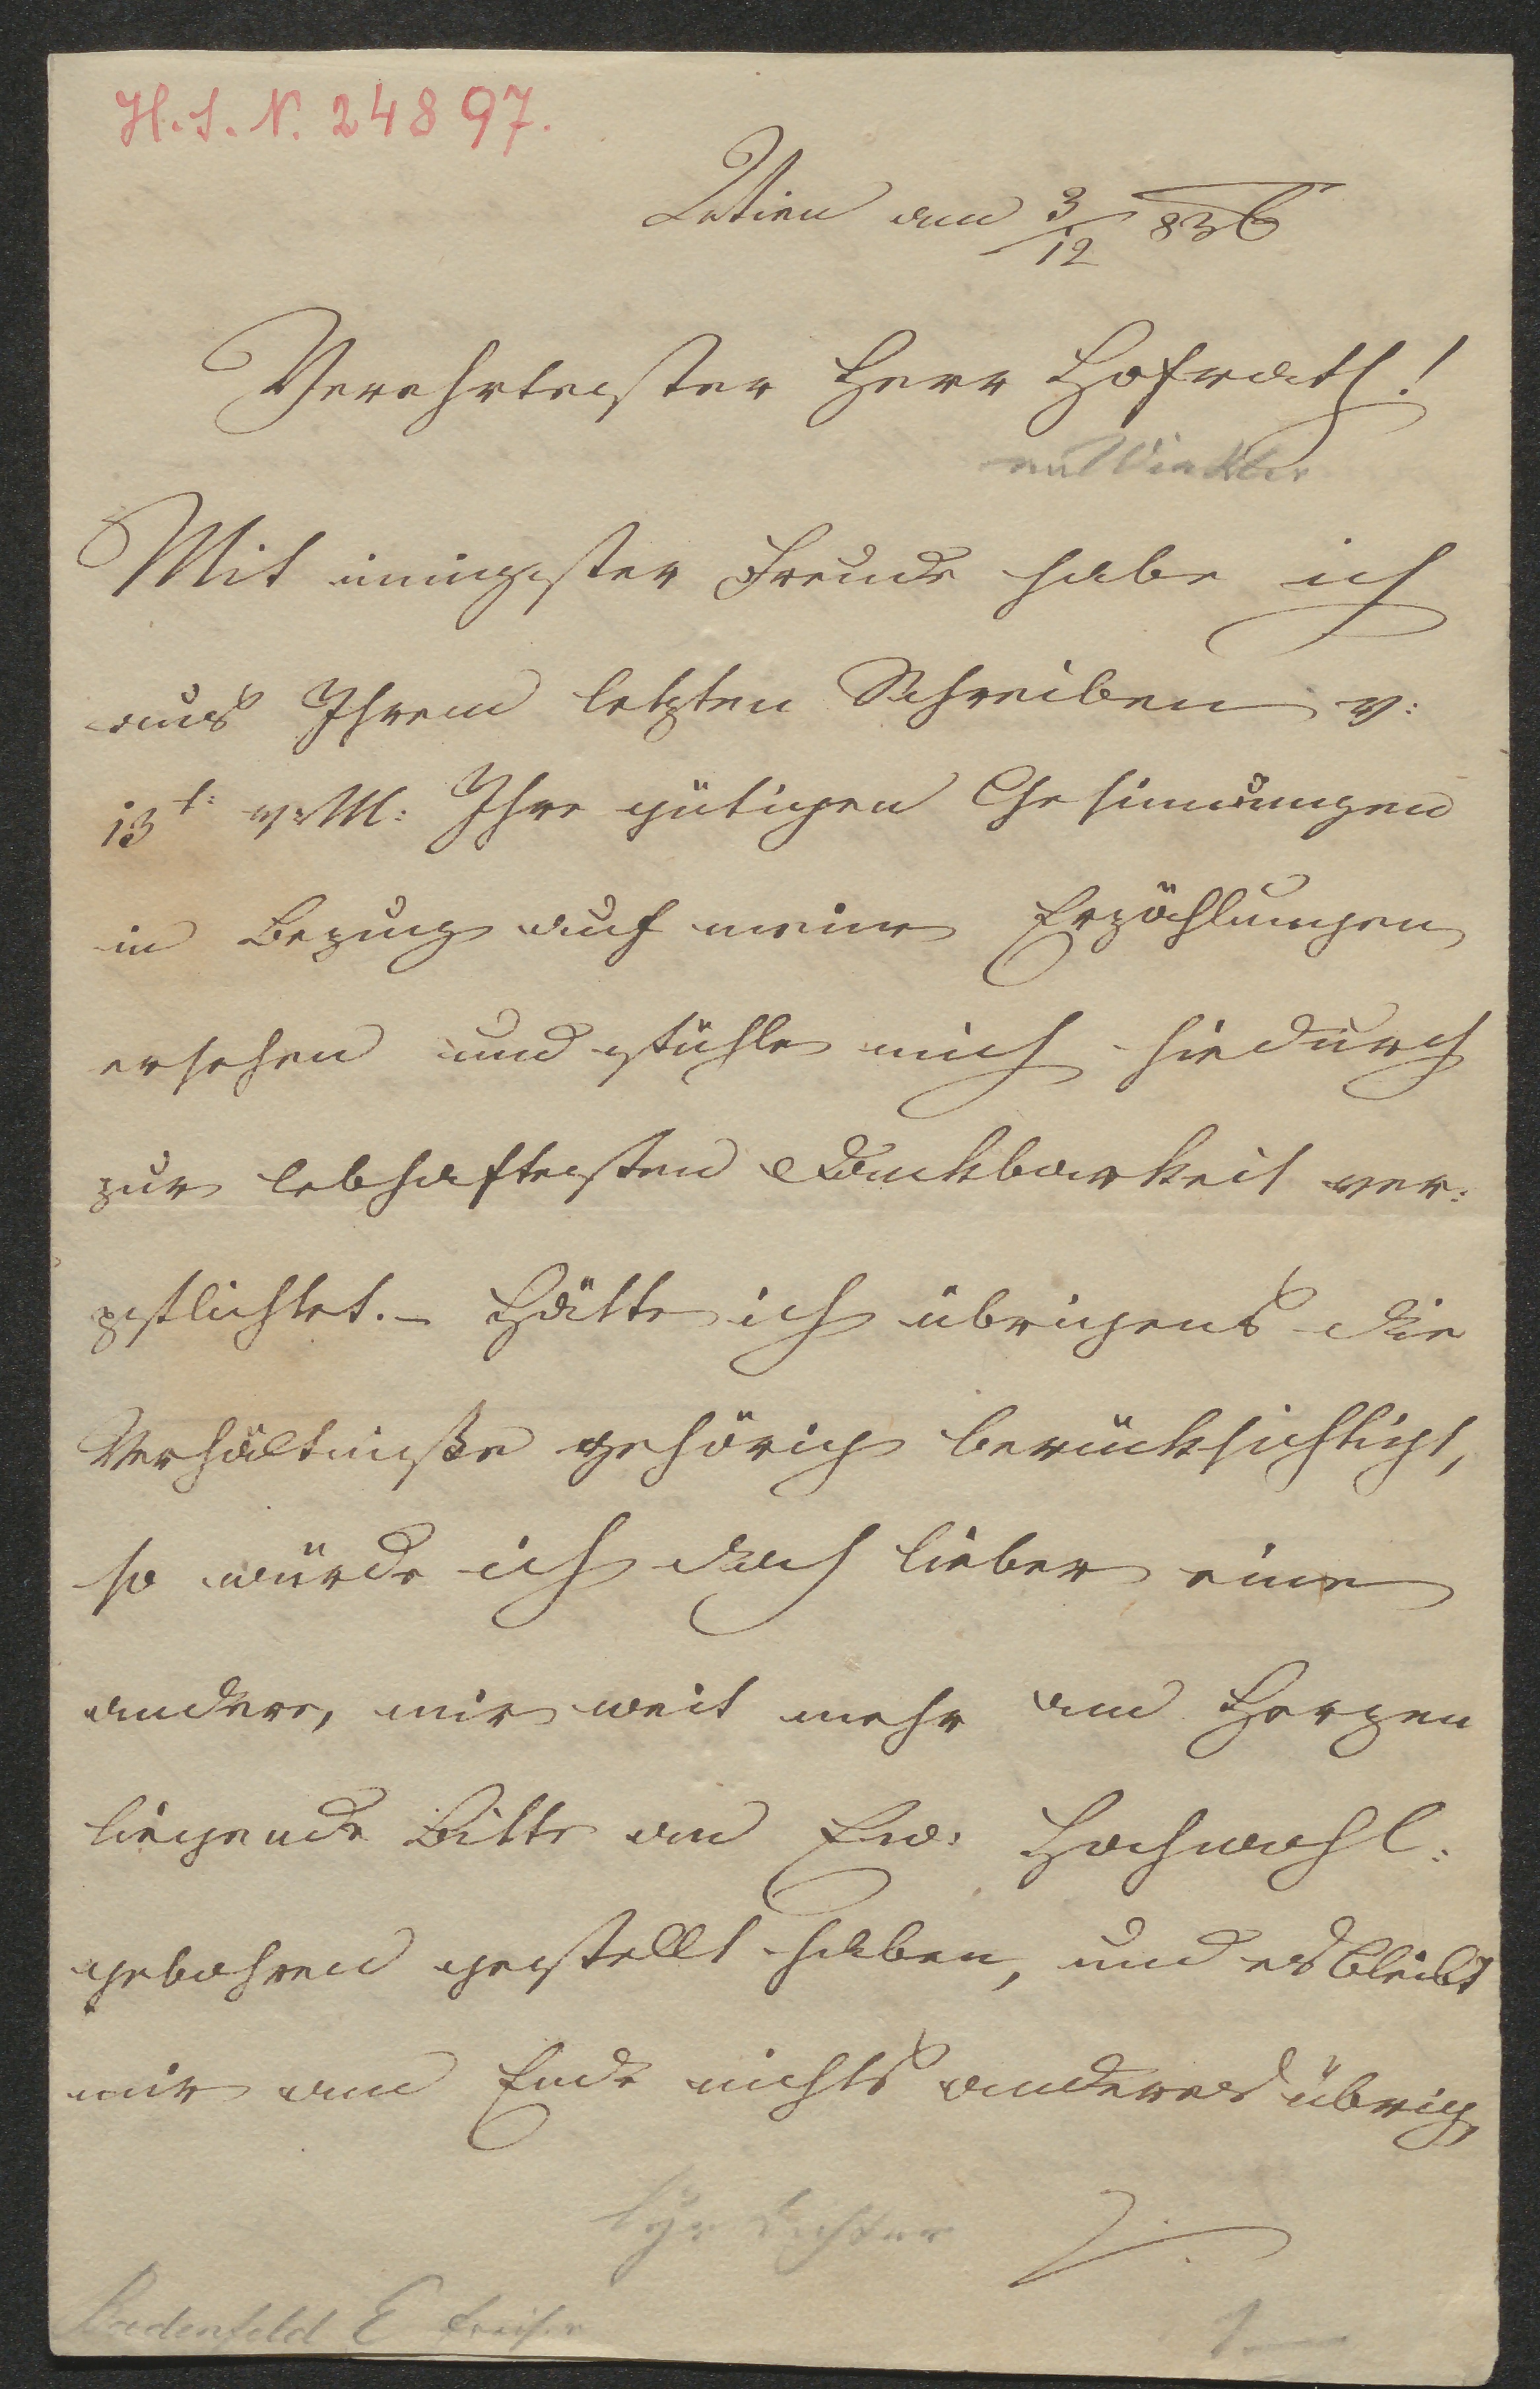 H.I.N. 24897.
Wien am 3/12 836
Verehrtester Herr Hofrath!
an Winkler
Mit innigster Freude habe ich
aus Ihrem letzten Schreiben v:
13t: v: M: Ihre gütigen Gesinnungen
in Bezug auf meine Erzählungen
ersehen und fühle mich hiedurch
zur lebhaftesten Dankbarkeit ver:
pflichtet. – Hätte ich übrigens die
Verhältniße gehörig berücksichtigt,
so würde ich doch lieber eine
andere, mir weit mehr am Herzen
liegende Bitte an Euer: Hochwohl:
gebohren gestellt haben, und es bleibt
mir am Ende nichts anderes übrig,
lyr Dichter
Badenfeld E Freiherr
1